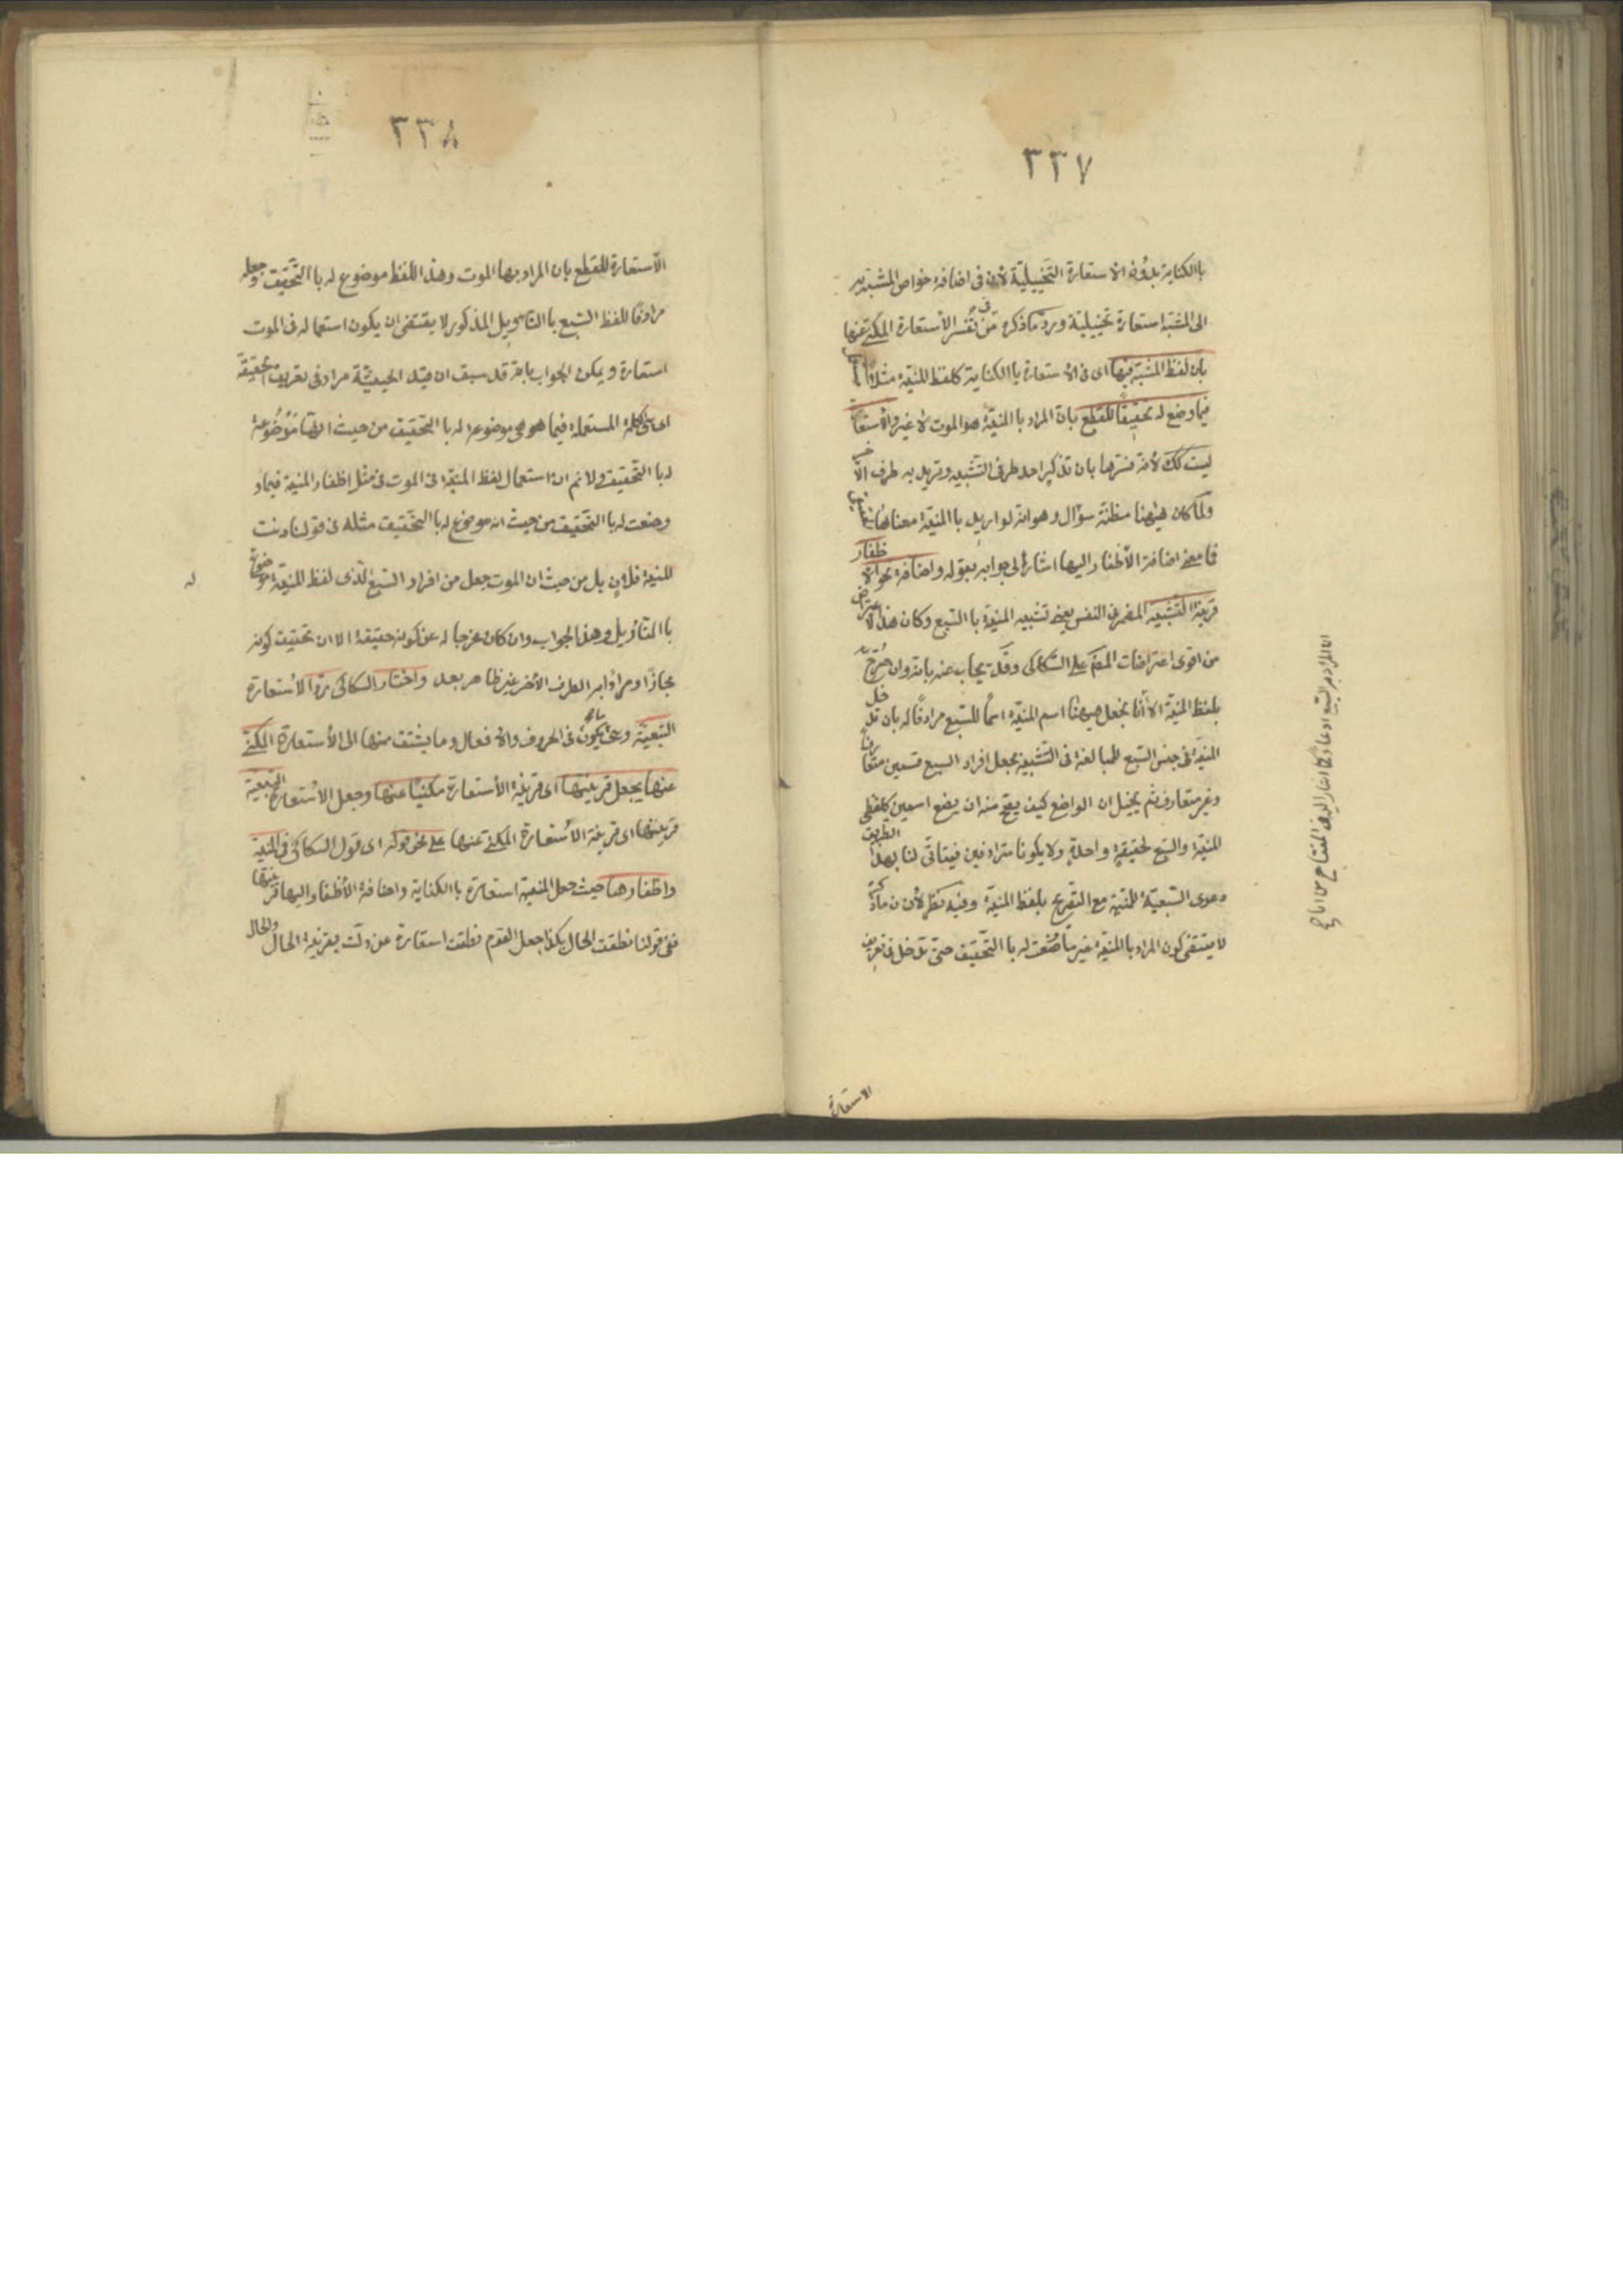 ٣٣٧
باالكناية بدون الاستعارة التخييليّة لأن فى اضافة خواص المشبّه به
الى المشبّه استعارة تخييليّة وردّ ما ذكره من تفسير الأستعارة المكنّى عنها
بان لفظ المشبّه فيها اى فى الأستعارة باالكناية كلفظ المنيّة مثلاً
فيما وضع له تحقيقًا للقطع بان المراد باالمنيّة هو الموت لا غير والأستعا
ليست كك لأنه فسّرها بان تذكر احد طرفى التشبيه وتريد به طرف الا
ولما كان هيهنا مظنّة سؤال وهو انه لو اريد باالمنيّة معناها
فما معنى اضافة الأظفار اليها اشار الى جوابه بقوله واضافة نحو الا ظفار
قرينة التشبيه المضمر فى النفس يعنى تشبيه المنيّة باالسّبع وكان هذا الاعتراض
من اقوى اعتراضات المص على السّكاكى وقد يجاب عنه بانه وان صرّح
بلفظ المنيّة الا أنّا نجعل هيهنا اسم المنيّة اسمًا للسّبع مرادفًا له بان تدخل
المنيّة فى جنس السّبع للمبالغة فى التّشبيه بجعل افراد السبع قسمين متعارفًا
وغير متعارف ثم يخيّل ان الواضع كيف يصح منه ان يضع اسمين كلفظى
المنيّة والسّبع لحقيقة واحدة ولا يكونا مترادفين فيتاتّى لنا بهذا الطريق
دعوى السّبعيّة للمنيّة مع التصريح بلفظ المنيّة وفيه نظر لأن ما ذكره
لا يقتضى كون المراد باالمنيّة غير ما وضعت له باالتّحقيق حتّى تدخل فى تعريف
الاستعارة
٣٣٨
الأستعارة للقطع بان المراد بها الموت وهذا اللّفظ موضوع له باالتّحقيق وجعله
مرادفًا للفظ السّبع باالتاويل المذكور لا يقتضى ان يكون استعماله فى الموت
استعارة ويمكن الجواب بانه قد سبق ان قيد الحيثيّة مراد فى تعريف الحقيقة
اى هى الكلمة المستعملة فيما هى موضوعة له باالتحقيق من حيث انها موضوعة
له باالتّحقيق ولا نم ان استعمال لفظ المنيّة فى الموت فى مثل اظفار المنيّة فيما
وضعت له باالتّحقيق من حيث انه موضوع له باالتّحقيق مثله فى قولنا دنت
المنيّة فلان بل من حيث ان الموت جعل من افراد السّبع الّذى لفظ المنيّة موضوع
له
باالتأويل وهذا الجواب وان كان مخرجا له عن كونه حقيقة الا ان تحقيق كونه
مجازًا ومرادًا به الطرف الأخر غير ظاهر بعد واختار السكاكى ردّ الأستعارة
التبعيّة وهى ما يكون فى الحروف والافعال وما يشتق منها الى الأستعارة المكنّى
عنها بجعل قرينتها اى قرينة الأستعارة مكنيًا عنها وجعل الأستعارة التبعيّة
قرينتها اى قرينة الأستعارة المكنّى عنها على نحو قوله اى قول السكاكى فى المنيّة
واظفارها حيث جعل المنيّة استعارة باالكناية واضافة الأظفار اليها قرينتها
ففى قولنا نطقت الحال بكذا جعل القوم نطقت استعارة عن دلّت بقرينة الحال والحال